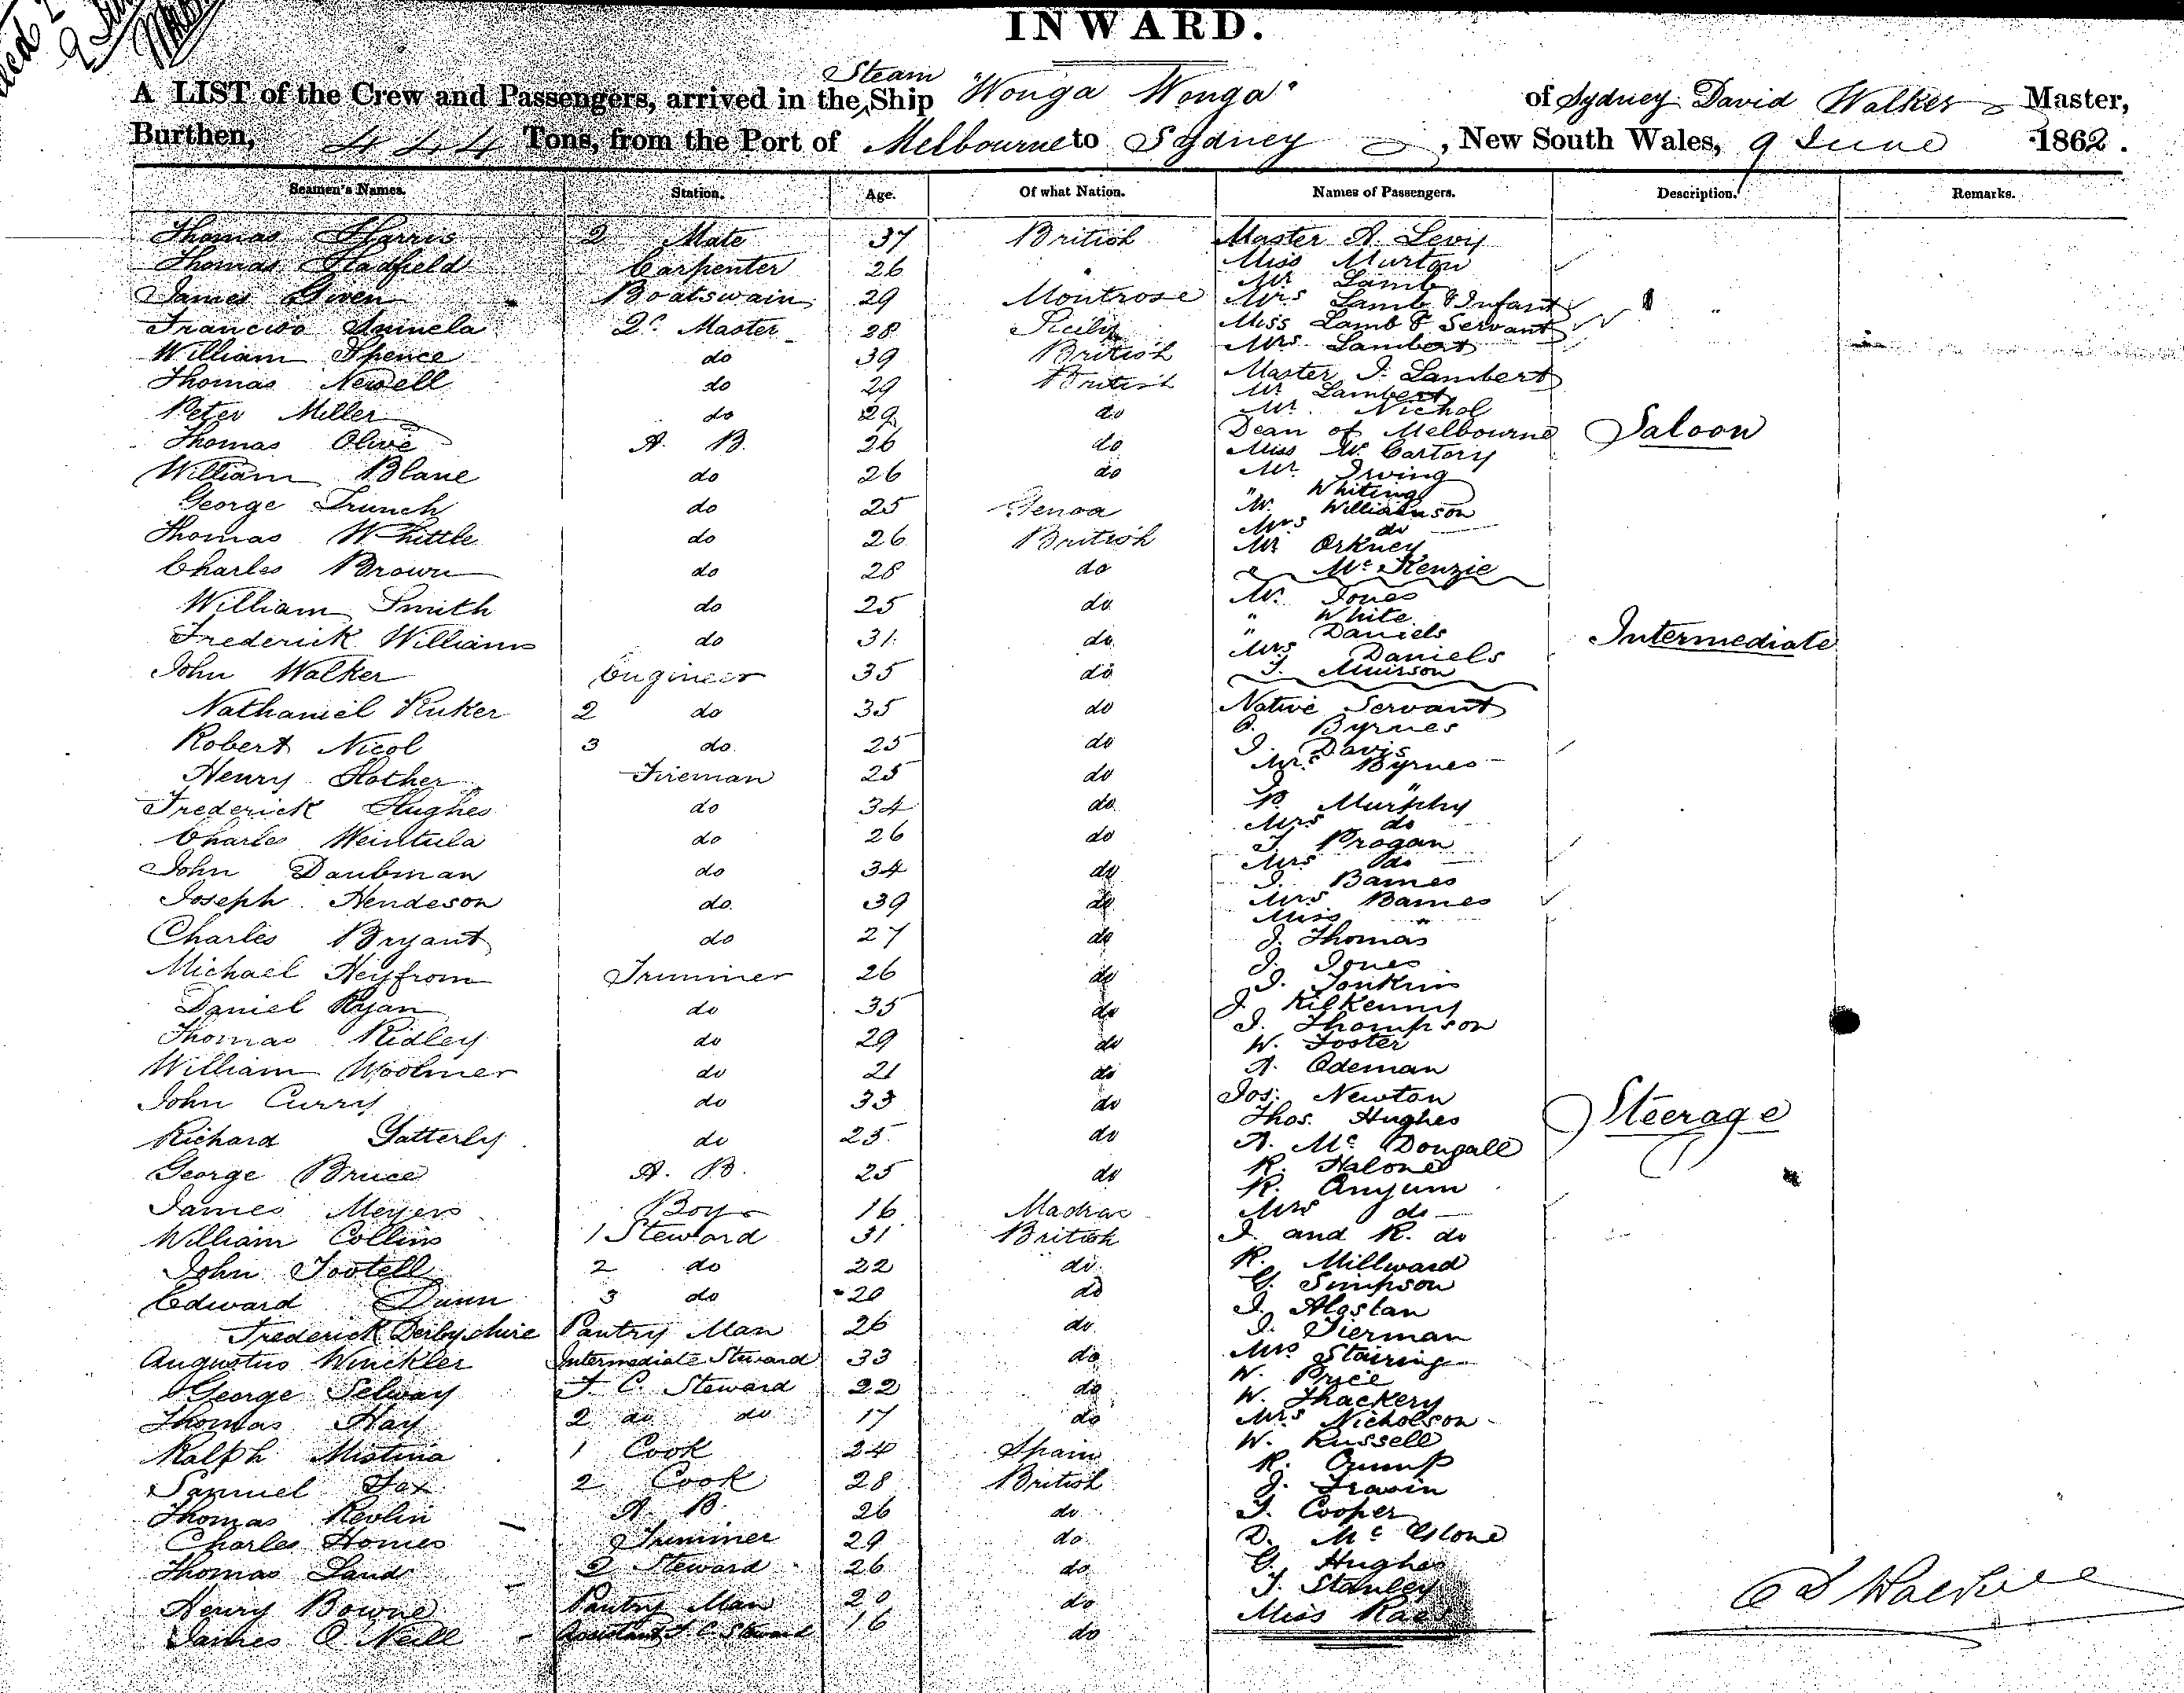 INWARD.
A LIST of the Crew and Passengers, arrived in the Steam Ship "Wonga Wonga" of Sydney David Walker Master,
Burthen, 444 Tons, from the Port of Melbourne to Sydney, New South Wales, 9 June 1862.
Seamen's Names. Station. Age. Of what Nation. Names of Passengers. Description. Remarks.
Thomas Harris 2 Mate 37 British
Thomas Hadfield Carpenter 26 "
James Given Boatswain 29 Montrose
Francisco 2r Master 28 Sicily
William Spence do 39 British
Thomas Newell do 29 British
Peter Miller do 29 do
Thomas Olive A. B. 26 do
William Blane do 26 do
George Trunch do 25 Genoa
Thomas Whittle do 26 British
Charles Brown do 28 do
William Smith do 25 do
Frederick Williams do 31 do
John Walker Engineer 35 do
Nathaniel Ruker 2 do 35 do
Robert Nicol 3 do 25 do
Henry Hother Fireman 25 do
Frederick Hughes do 34 do
Charles Weintula do 26 do
John Daubman do 34 do
Joseph Hendeson do 39 do
Charles Bryant do 27 do
Michael Heyfrom Trimmer 26 do
Daniel Ryan do 35 do
Thomas Ridley do 29 do
William Woolmer do 21 do
John Curry do 33 do
Richard Gatterly do 25 do
George Bruce A. B. 25 do
James Meyers Boy 16 Madras
William Collins 1 Steward 31 British
John Tootell 2 do 22 do
Edward Dunn 3 do 20 do
Frederick Derbyshire Pantry Man 26 do
Augustus Winckler Intermediate Steward 33 do
George Selway F. C. Steward 22 do
Thomas Hay 2 do do 17 do
Ralph Mistina 1 Cook 24 Spain
Samuel Fox 2 Cook 28 British
Thomas Revlin A B 26 do
Charles Homes Trimmer 29 do
Thomas Land 2 Steward 26 do
Henry Bowne Pantry Man 20 do
James O'Neill Assistant F. C. Steward 16 do
Master A. Levy
Miss Murton
Mr Lamb
Mrs Lamb & Infant
Miss Lamb & Servant
Mrs Lambert
Master J. Lambert
Mr Lambert
Mr. Nichol
Dean of Melbourne
Miss McCartory
Mr. Irving
" Whiting
Mr. Williamson
Mrs do
Mr Orkney
" McKenzie
Saloon
Mr. Jones
" White
" Daniels
Mrs Daniels
J. Muirson
Intermediate
Native Servant
O. Byrnes
J. Davis
Mrs Byrnes
J. "
P. Murphy
Mrs do
J. Brogan
Mrs do
J. Barnes
Mrs Barnes
Miss "
J. Thomas
J. Jones
J. Jonkins
J. Kilkenny
J. Thompson
W. Foster
A. Odeman
Jos. Newton
Thos. Hughes
A. McDougall
R. Halone
R. Anyum
Mrs do
J. and R. do
R. Millward
G. Simpson
J. Alastan
J. Tierman
Mrs Stairing
W. Price
W. Thackery
Mrs Nicholson
W. Russell
R. Crump
J. Travin
T. Cooper
D. McGlone
G. Hughes
J. Stanley
Miss Rae
Steerage